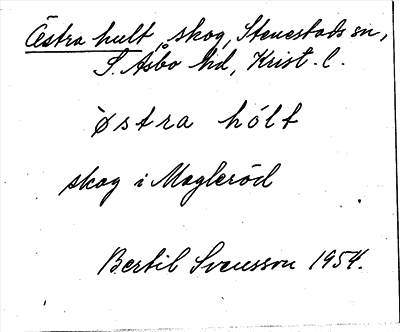 Östra hult, skog, Stenestads sn,
S. Åsbo hd, Krist. l.
ỳstra hólt
skog i Magleröd
Bertil Svensson 1954.